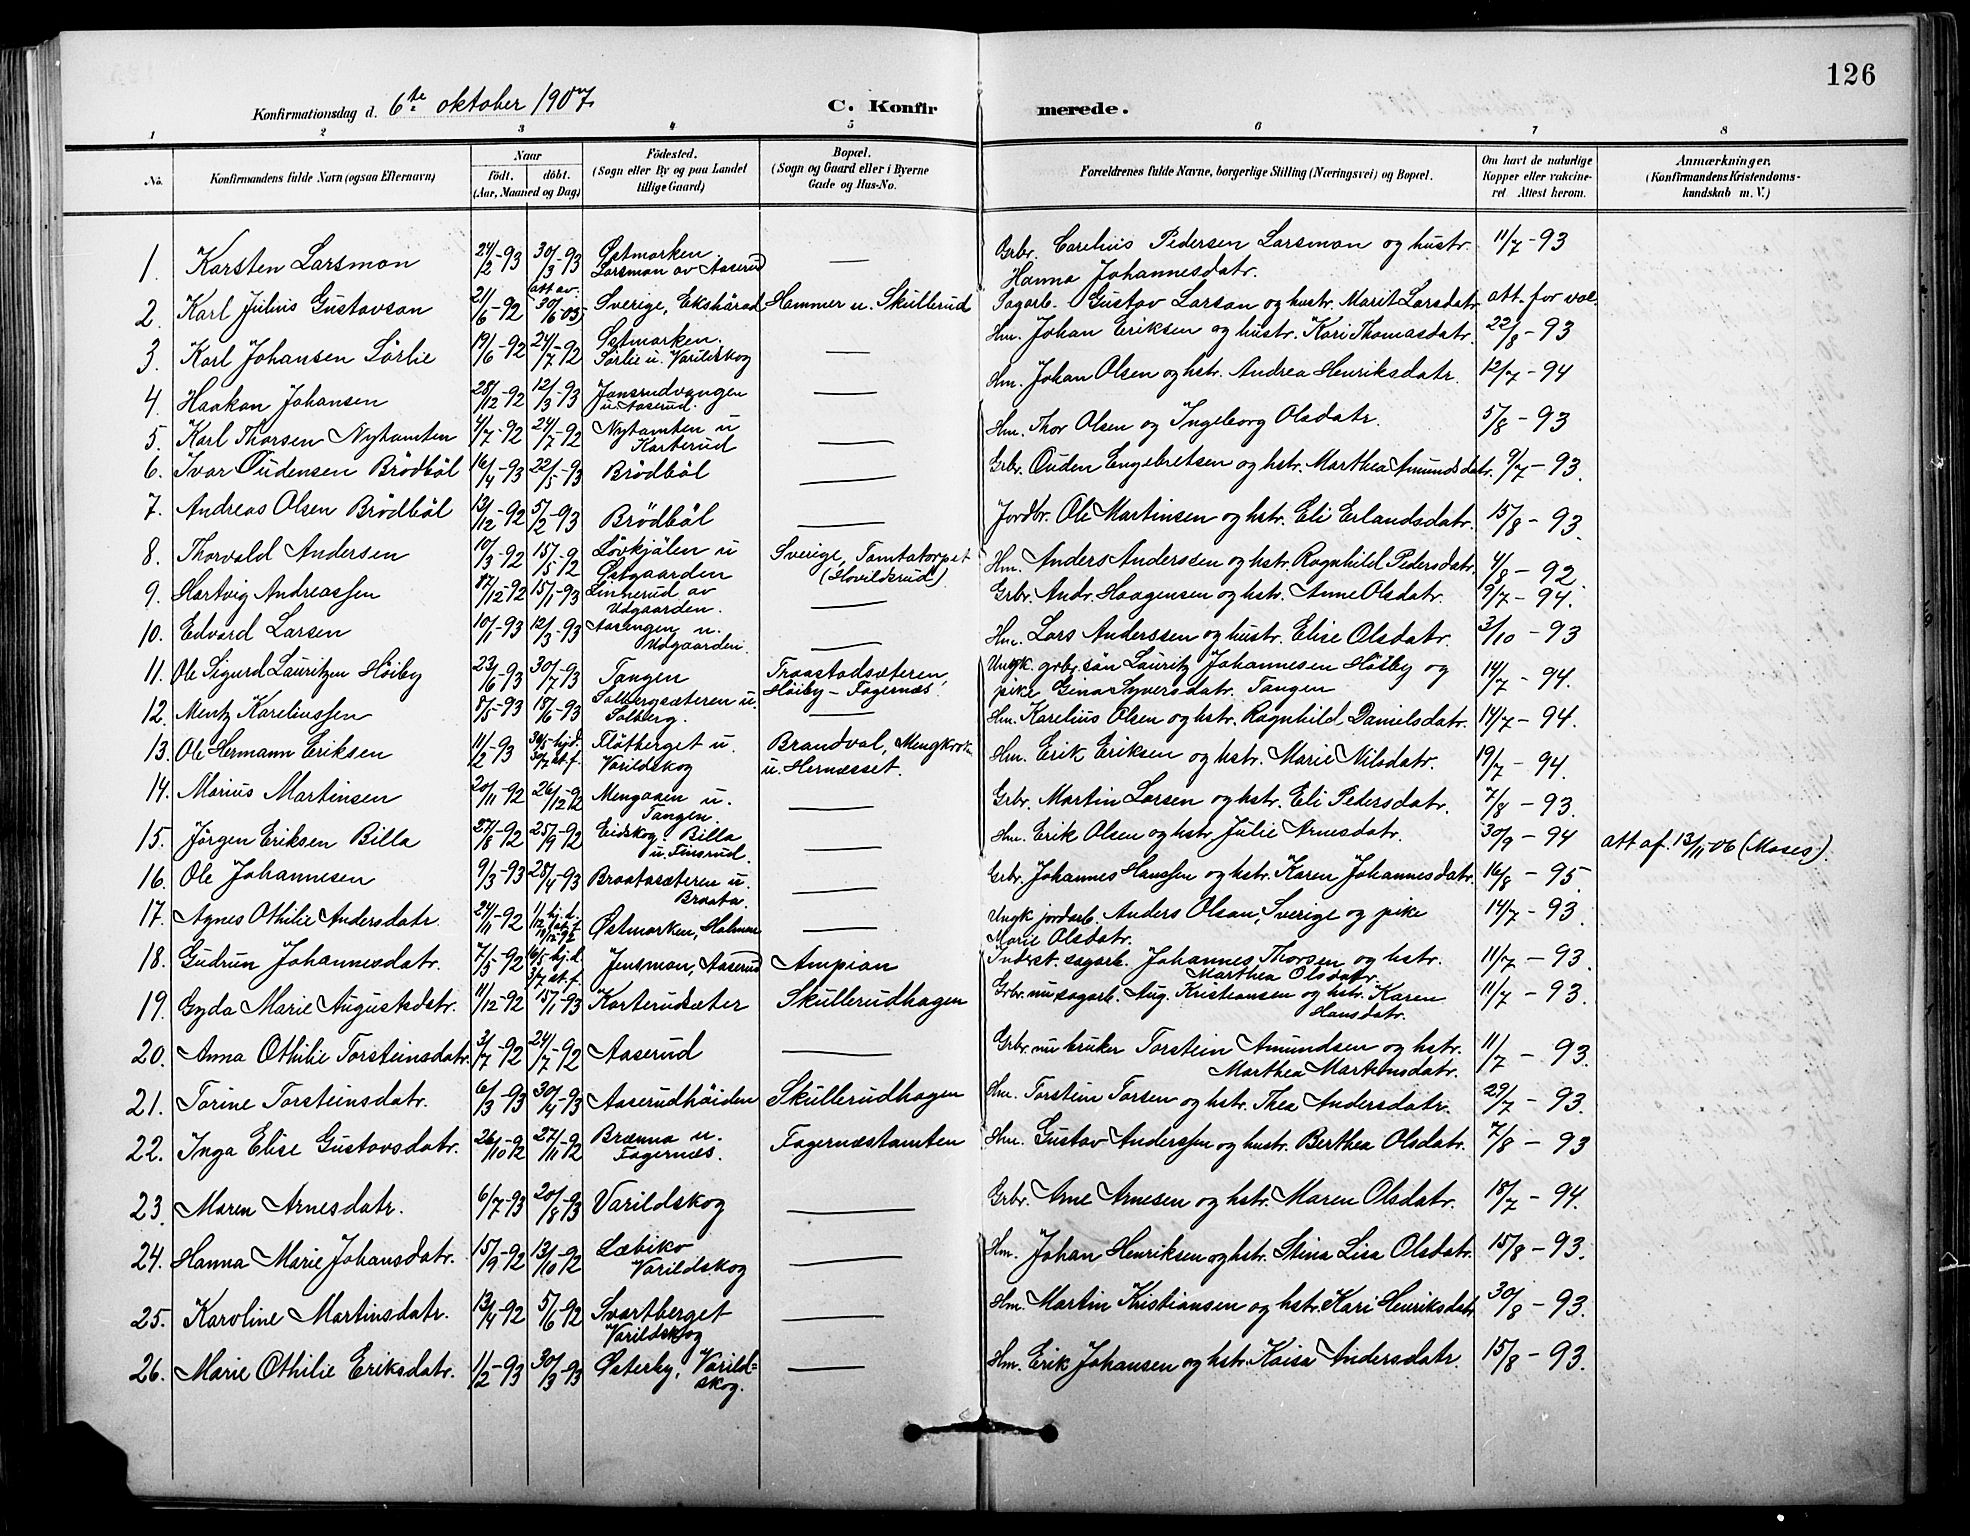 126
Konfirmationsdag d. 6te oktober 1907.
C. Konfirmerede.
1 2 3 4 5 6 7 8
No. Konfirmandens fulde Navn (ogsaa Efternavn) Naar født. døbt. (Aar, Maaned og Dag) Fødested. (Sogn eller By og paa Landet tillige Gaard) Bopæl. (Sogn og Gaard eller i Byerne Gade og Hus-No. Forældrenes fulde Navne, borgerlige Stilling (Næringsvei) og Bopæl. Om havt de naturlige Kopper eller vakcineret Attest herom. Anmærkninger. (Konfirmandens Kristendomskundskab m. V.)
1. Karsten Larsmon 24/2-93 30/3-93 Østmarken Larsmon av Aaserud — Grbr. Carelius Pedersen Larsmon og hustr. Hanna Johannesdatr. 11/7-93
2. Karl Julius Gustavson 21/6-92 att av. 30/6-05 Sverige, Ekshärad Hammer u. Skullerud Sagarb. Gustav Larson og hustr. Marit Larsdatr. att. for vac.
3. Karl Johansen Sörlie 19/6-92 24/7-92 Østmarken. Sørlie u. Varildskog — Hm. Johan Eriksen og hustr. Kari Thomasdatr. 22/8-93
4. Haakon Johansen 28/12-92 12/3-93 Jonsrudvangen u. Aaserud. — Hm. Johan Olsen og hstr. Andrea Henriksdatr. 12/7-94
5. Karl Thorsen Nytomten 4/7-92 24/7-92 Nytomten u Karterud — Hm. Thor Olsen og Ingeborg Olsdatr. 5/8-93
6. Ivar Oudensen Brödböl 16/4-93 22/5-93 Brödböl — Grbr. Ouden Engebretsen og hstr. Marthea Amundsdatr. 9/7-93.
7. Andreas Olsen Brödböl 13/12-92 5/2-93 Brödböl — Jordbr. Ole Martinsen og hstr. Eli Erlandsdatr. 15/8-93.
8. Thorvald Andersen 10/3-92 15/5-92 Lövkjölen u Østgaarden Sverige, Tomtatorpet (Hovildsrud). Hm. Anders Anderssen og hstr. Ragnhild Pedersdatr. 4/8-92
9. Hartvig Andreassen 17/12-92 15/1-93 Linnerud av Udgaarden. — Grbr. Andr. Haagensen og hstr. Anne Olsdatr. 9/7-94.
10. Edvard Larsen 10/1-93 12/3-93 Aasengen u. Udgaarden. — Hm. Lars Anderssen og hustr. Elise Olsdatr. 3/10-93
11. Ole Sigurd Lauritzen Höiby 23/6-93 30/7-93 Tangen Traastadsæteren, Höiby - Fagernæs Ungk. grbr. sön Lauritz Johannesen Höiby og pike Gina Syversdatr. Tangen 14/7-94.
12. Mentz Kareliussen 8/5-93 18/6-93 Solbergsæteren u. Solberg. — Hm. Karelius Olsen og hstr. Ragnhild Danielsdatr. 14/7-94.
13. Ole Hermann Eriksen 11/2-93 hjd. st. f. Flötberget u. Varildskog Brandval, u. Hernæsset. Hm. Erik Eriksen og hstr. Marie Nilsdatr. 19/7-94.
14. Marius Martinsen 20/11-92 26/12-92 Mengaaen u. Tangen. — Grbr. Martin Larsen og hstr. Eli Pedersdatr. 7/8-93.
15. Jörgen Eriksen Billa 27/8-92 25/9-92 Eidskog. Billa u. Finsrud. — Hm. Erik Olsen og hstr. Julie Arnesdatr. 30/9-94 att af. 13/11-06 (Moses).
16. Ole Johannesen 9/3-93 28/4-93 Braatasæteren u. Braata. — Grbr. Johannes Hanssen og hstr. Karen Johannesdatr. 16/8-95.
17. Agnes Othilie Andersdatr. 24/11-92 hj. d. Østmarken, Holmen Ungk jordarb. Anders Olson, Sverige og pike Marie Olsdatr. 14/7-93.
18. Gudrun Johannesdatr. 7/5-92 hj. d. 3/7 st. f. Jensmon, Aaserud Ampian Inderst. sagarb. Johannes Thorsen og hstr. Marthea Olsdatr. 11/7-93.
19. Gyda Marie Augustsdatr. 11/12-92 15/1-93 Karterudsæter Skullerudhagen Grbr. nu sagarb. Aug. Kristiansen og hstr. Karen Hansdatr. 11/7-93.
20. Anna Othilie Torsteinsdatr. 3/7-92 24/7-92 Aaserud — Grbr. nu bruker Torstein Amundsen og hstr. Marthea Martinsdatr. 11/7-93.
21. Torine Torsteinsdatr. 6/3-93 30/4-93 Aaserudhöiden Skullerudhagen Hm. Torstein Torsen og hstr. Thea Andersdatr. 29/7-93.
22. Inga Elise Gustavsdatr. 26/10-92 27/11-92 Brænna u. Fagernæs. Fagernæstomten Hm. Gustav Anderssen og hustr. Berthea Olsdatr. 7/8-93
23. Maren Arnesdatr. 6/7-93 20/8-93 Varildskog — Grbr. Arne Arnesen og hstr. Maren Olsdatr. 18/7-94.
24. Hanna Marie Johansdatr. 15/9-92 13/10-92 Læbiko Varildskog — Hm. Johan Henriksen og hstr. Stina Lisa Olsdatr. 15/8-93.
25. Karoline Martinsdatr. 13/4-92 5/6-92 Svartberget Varildskog — Hm. Martin Kristiansen og hstr. Kari Henriksdatr. 30/8-93.
26. Marie Othilie Eriksdatr. 11/2-93 30/3-93 Østerby, Varildskog. — Hm. Erik Johansen og hstr. Kaisa Andersdatr. 15/8-93.